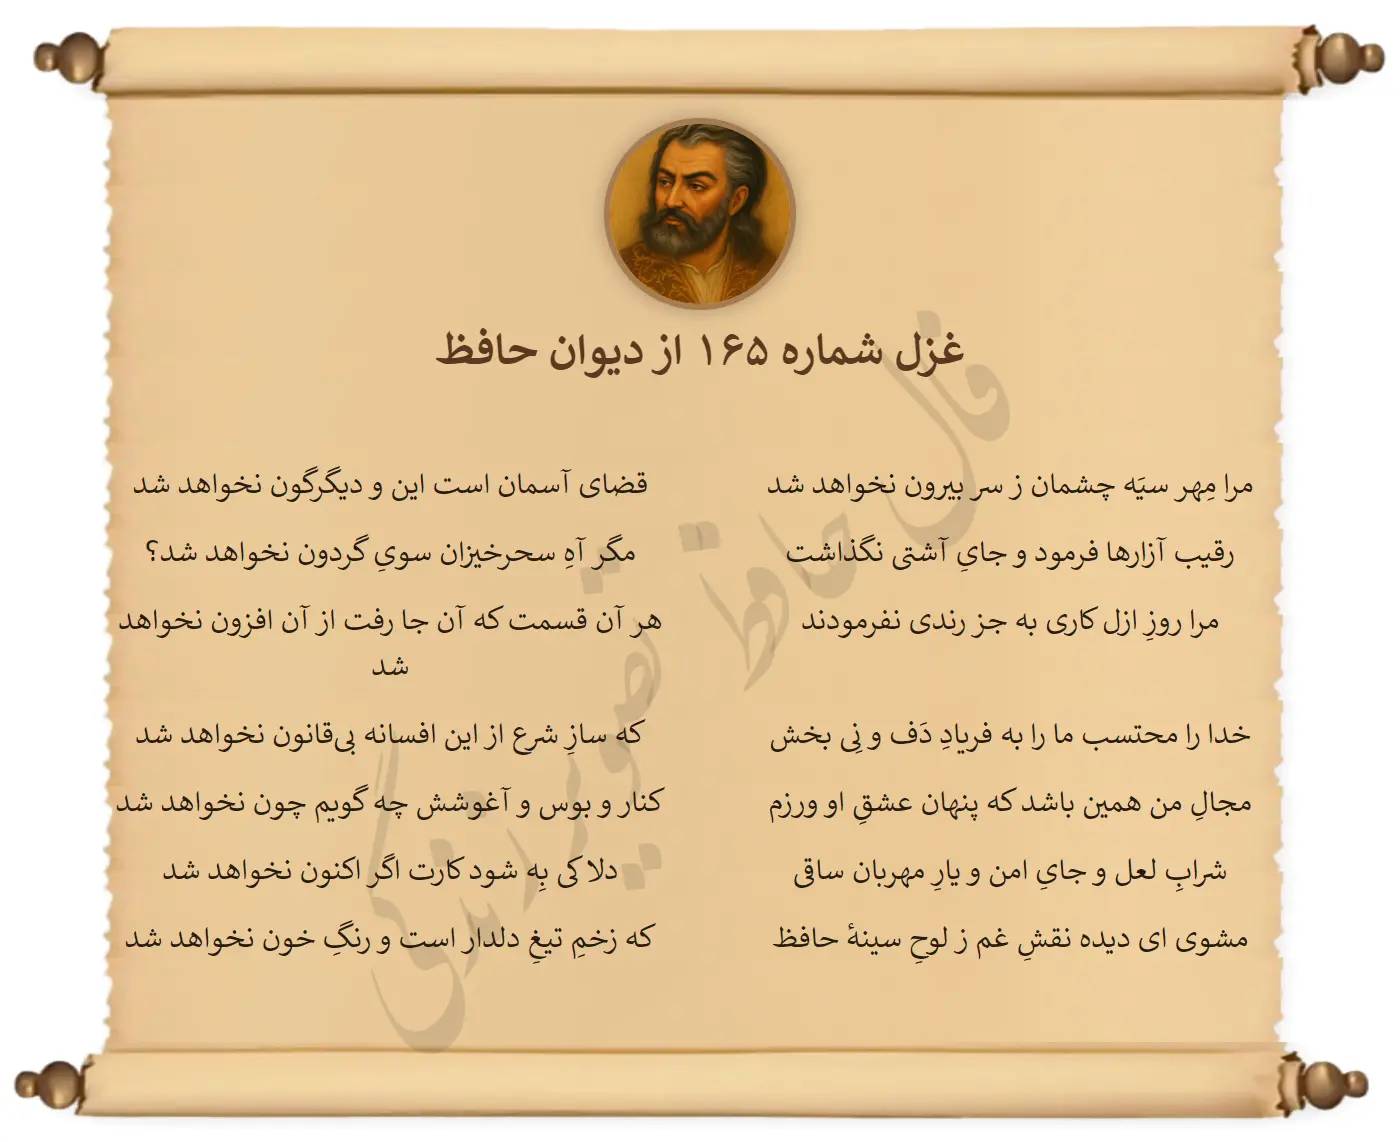 غزل شماره ۱۶۵ از دیوان حافظ
مرا مِهر سیَه چشمان ز سر بیرون نخواهد شد
قضای آسمان است این و دیگرگون نخواهد شد
رقیب آزارها فرمود و جایِ آشتی نگذاشت
مگر آهِ سحرخیزان سویِ گردون نخواهد شد؟
مرا روزِ ازل کاری به جز رندی نفرمودند
هر آن قسمت که آن جا رفت از آن افزون نخواهد
شد
خدا را محتسب ما را به فریادِ دَف و نِی بخش
که سازِ شرع از این افسانه بی‌قانون نخواهد شد
مجالِ من همین باشد که پنهان عشقِ او ورزم
کنار و بوس و آغوشش چه گویم چون نخواهد شد
شرابِ لعل و جایِ امن و یارِ مهربان ساقی
دلا کی بِه شود کارت اگر اکنون نخواهد شد
مشوی ای دیده نقشِ غم ز لوحِ سینهٔ حافظ
که زخمِ تیغِ دلدار است و رنگِ خون نخواهد شد
فال حافظ تصویر زندگی